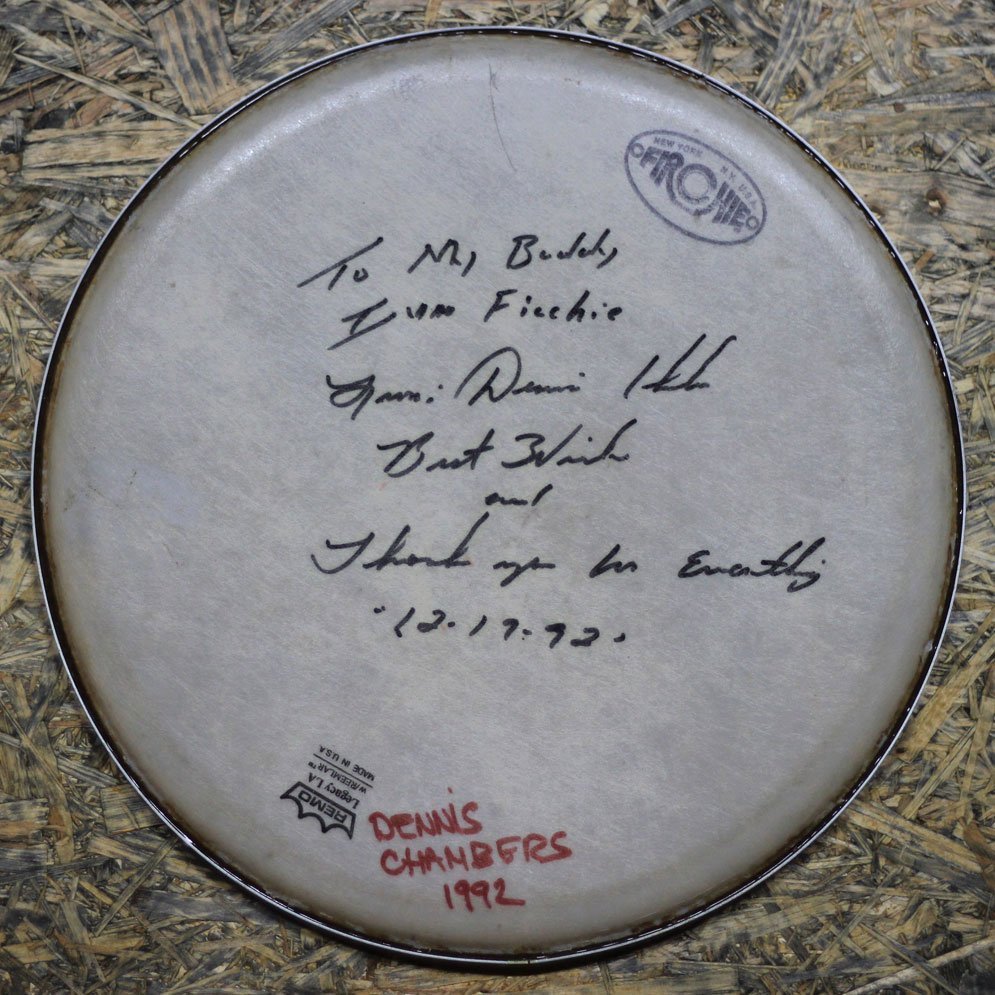 NEW YORK N.Y. U.S.A.
To My Buddy
Ficchie
From: Dennis
Best Wishes
and
Thank you for Everything
"12.17.92"
REMO
Legacy LA
W/REEMLAR™
MADE IN U.S.A
DENNIS
CHAMBERS
1992